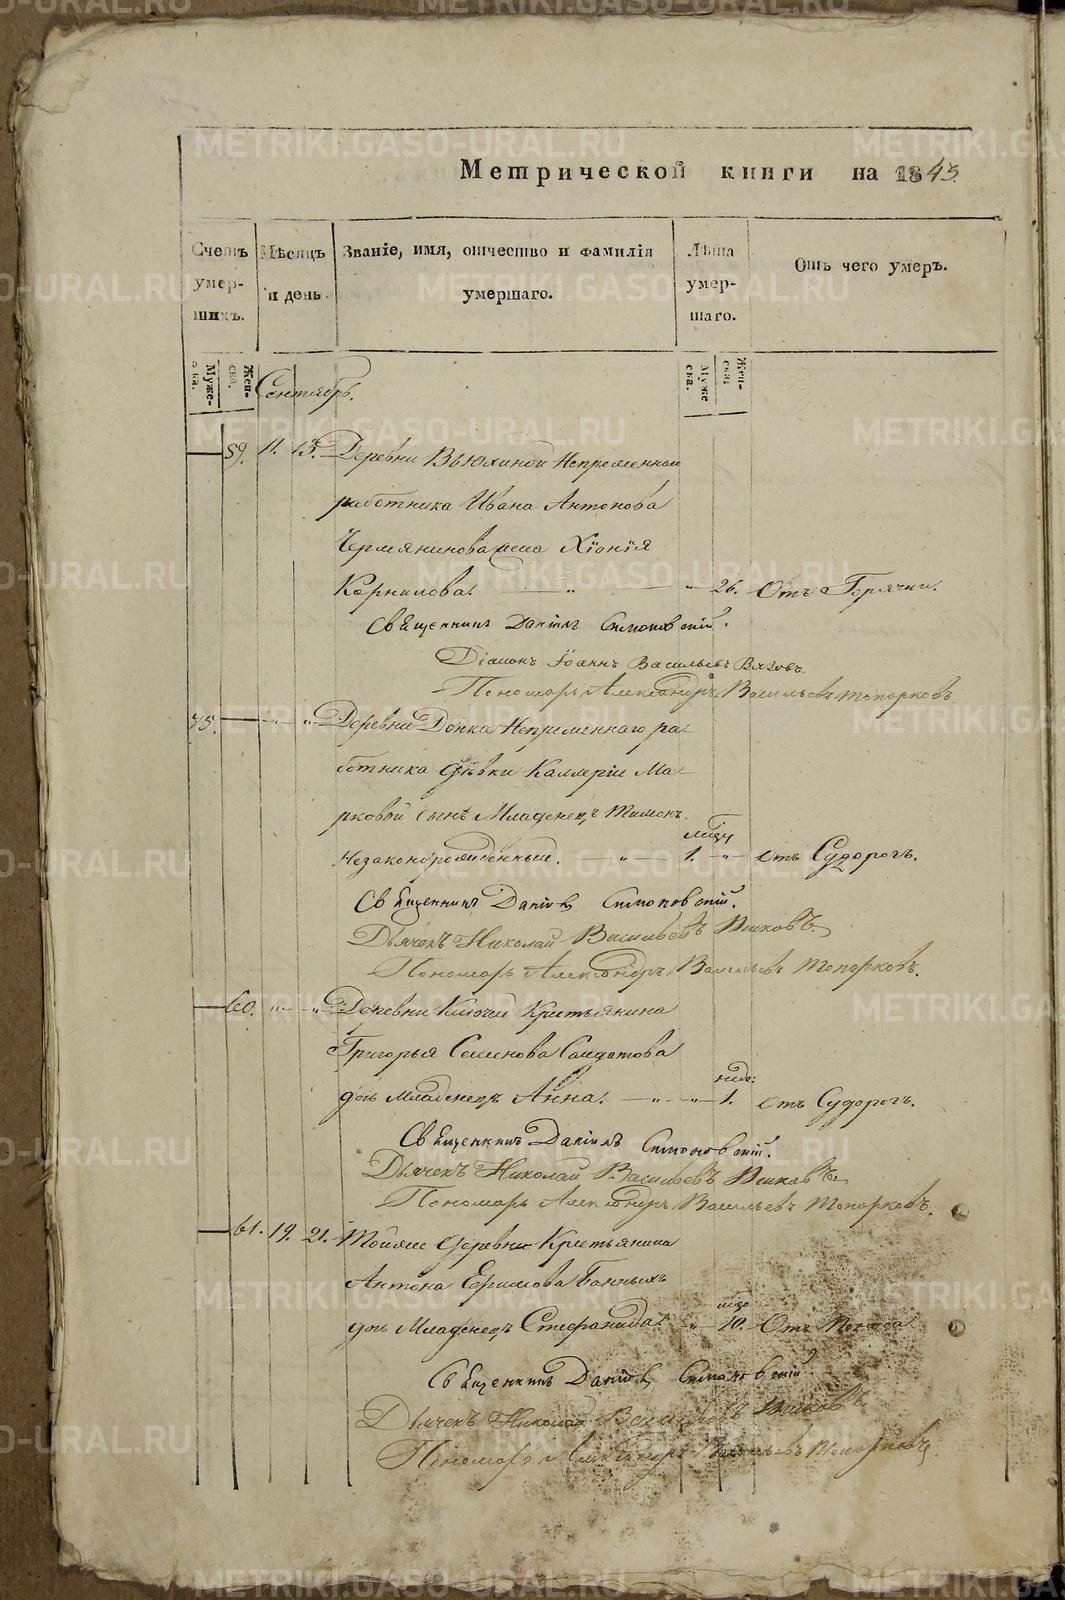 Метрической книги на 1843.
Счетъ умер-шихъ.
Мѣсяцъ и день.
Званіе, имя, отчество и фамилія умершаго.
Лѣта умер-шаго.
Отъ чего умеръ.
Муже-ска.
Жен-ска.
Муже-ска.
Жен-ска.
Сентябрь.
59. 11. 13. Деревни Вьюхиной Непременнаго
работника Ивана Антонова
Чермянинова жена Хіонія
Корнилова. — „ — „ 26. Отъ Горячки.
Священникъ Даніилъ Симоновскій.
Діаконъ Іоаннъ Васильевъ
Пономарь Александръ Васильевъ Топорковъ.
„ „ Деревни Донка Непременнаго ра-
ботника дѣвки Калеріи Ма-
рковой сынъ Младенецъ Тимонъ
Незаконорожденный. — „ — 1. „ отъ Судорогъ.
Священникъ Даніилъ Симоновскій.
Дьячекъ Николай Васильевъ
Пономарь Александръ Васильевъ Топорковъ.
60. „ „ Деревни Ключей Крестьянина
Григорья Семенова Солдатова
дочь Младенецъ Анна. — „ — „ — неде: 1. отъ Судорогъ.
Священникъ Даніилъ Симоновскій.
Дьячекъ Николай Васильевъ
Пономарь Александръ Васильевъ Топорковъ.
61. 19. 21. Тойже деревни Крестьянина
Антона Ефимова
дочь Младенецъ Стефанида. „ 10. Отъ Поноса
Священникъ Даніилъ Симоновскій
Дьячекъ Николай Васильевъ
Пономарь Александръ Васильевъ Топорковъ.
METRIKI.GASO-URAL.RU